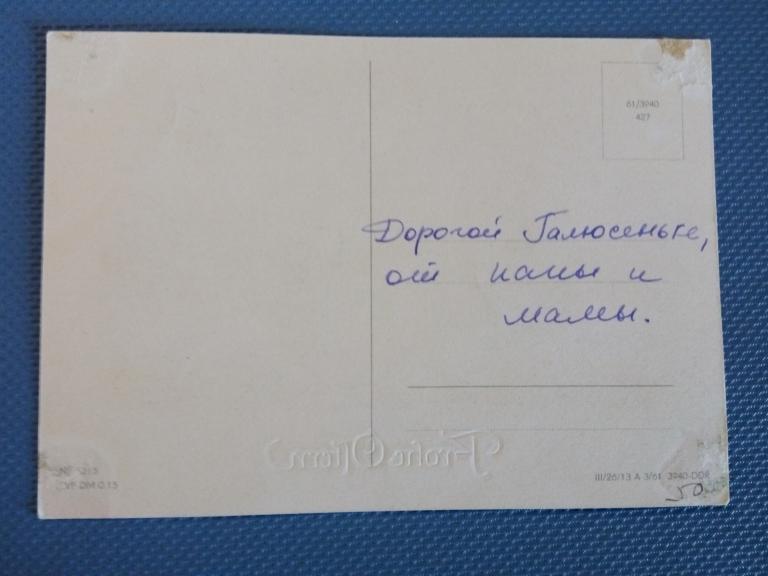 61/3940
427
Дорогой Галюсеньке,
от папы и
мамы.
Frohe Ostern
EVP DM 0.15
III/26/13 A 3/61 3940-DDR
50